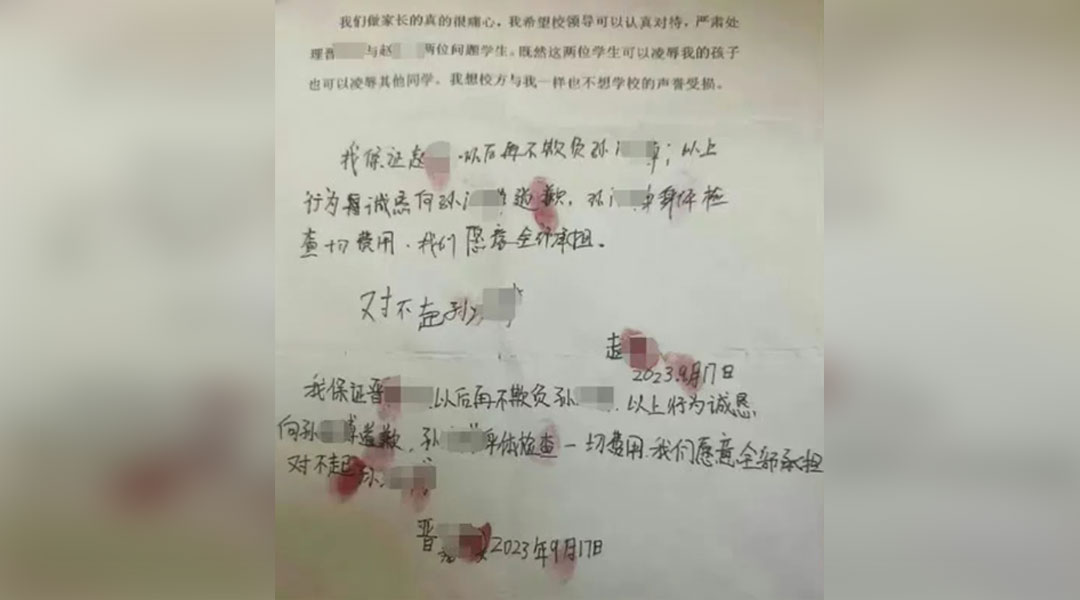 我们做家长的真的很痛心，我希望校领导可以认真对待，严肃处
理晋 与赵 两位问题学生。既然这两位学生可以凌辱我的孩子
也可以凌辱其他同学。我想校方与我一样也不想学校的声誉受损。
我保证赵 以后再不欺负孙 ；以上
行为 诚恳向孙 道歉，孙 身体检
查一切费用，我们愿意全部承担。
对不起孙
赵
2023.9月17日
我保证晋 以后再不欺负孙 . 以上行为诚恳
向孙 道歉，孙 身体检查一切费用.我们愿意全部承担
对不起孙
晋
2023年9月17日